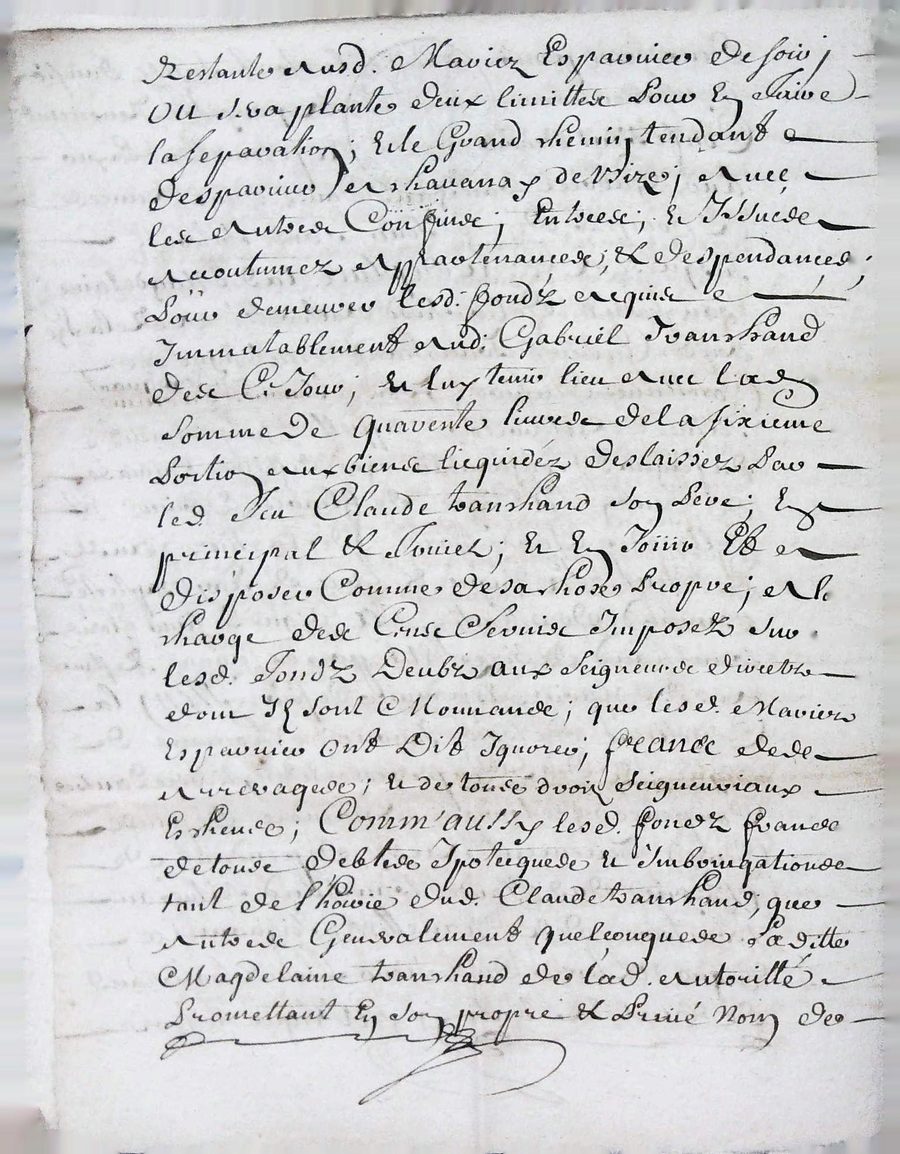 Restante ausd. Mariez Esparuier de soir ;
ou sera planté deux limittes Pour En faire
la separation ; Et le Grand chemin tendant
d'esparuier a chauanay de vize ; avec
les autres Confins ; Entrees ; Et Issues
accoutumez appartenances ; & despendances ;
Pour demeurer lesd. fondz acquis
Immutablement aud. Gabriel Tranchand
des Ce Jour ; Et luy tenir lieu avec lad.
somme de quarente livres de la sixieme
Portion aux biens licquidéz deslaissez Par
led. feu Claude tranchand son Pere ; En
principal & fruicts ; Et En Jouir Et
disposer Comme de sa chose Propre ; a la
charge des Cens Servis Imposez sur
lesd. fondz Deubz aux Seigneurs directz
dont Ilz sont Mouuands ; que lesd. Mariez
Esparuier ont Dit Ignorer ; francs des
arrerages ; Et de tous droitz Seigneuriaux
Escheus ; Comm'aussy lesd. fondz francs
de tous debtes Ipotecques Et Imbringations
tant de l'hoirie dud. Claude tranchand, que
autres Generalement quelconques Laditte
Magdelaine tranchand de lad. autoritté
Promettant En son propre & Privé Nom de